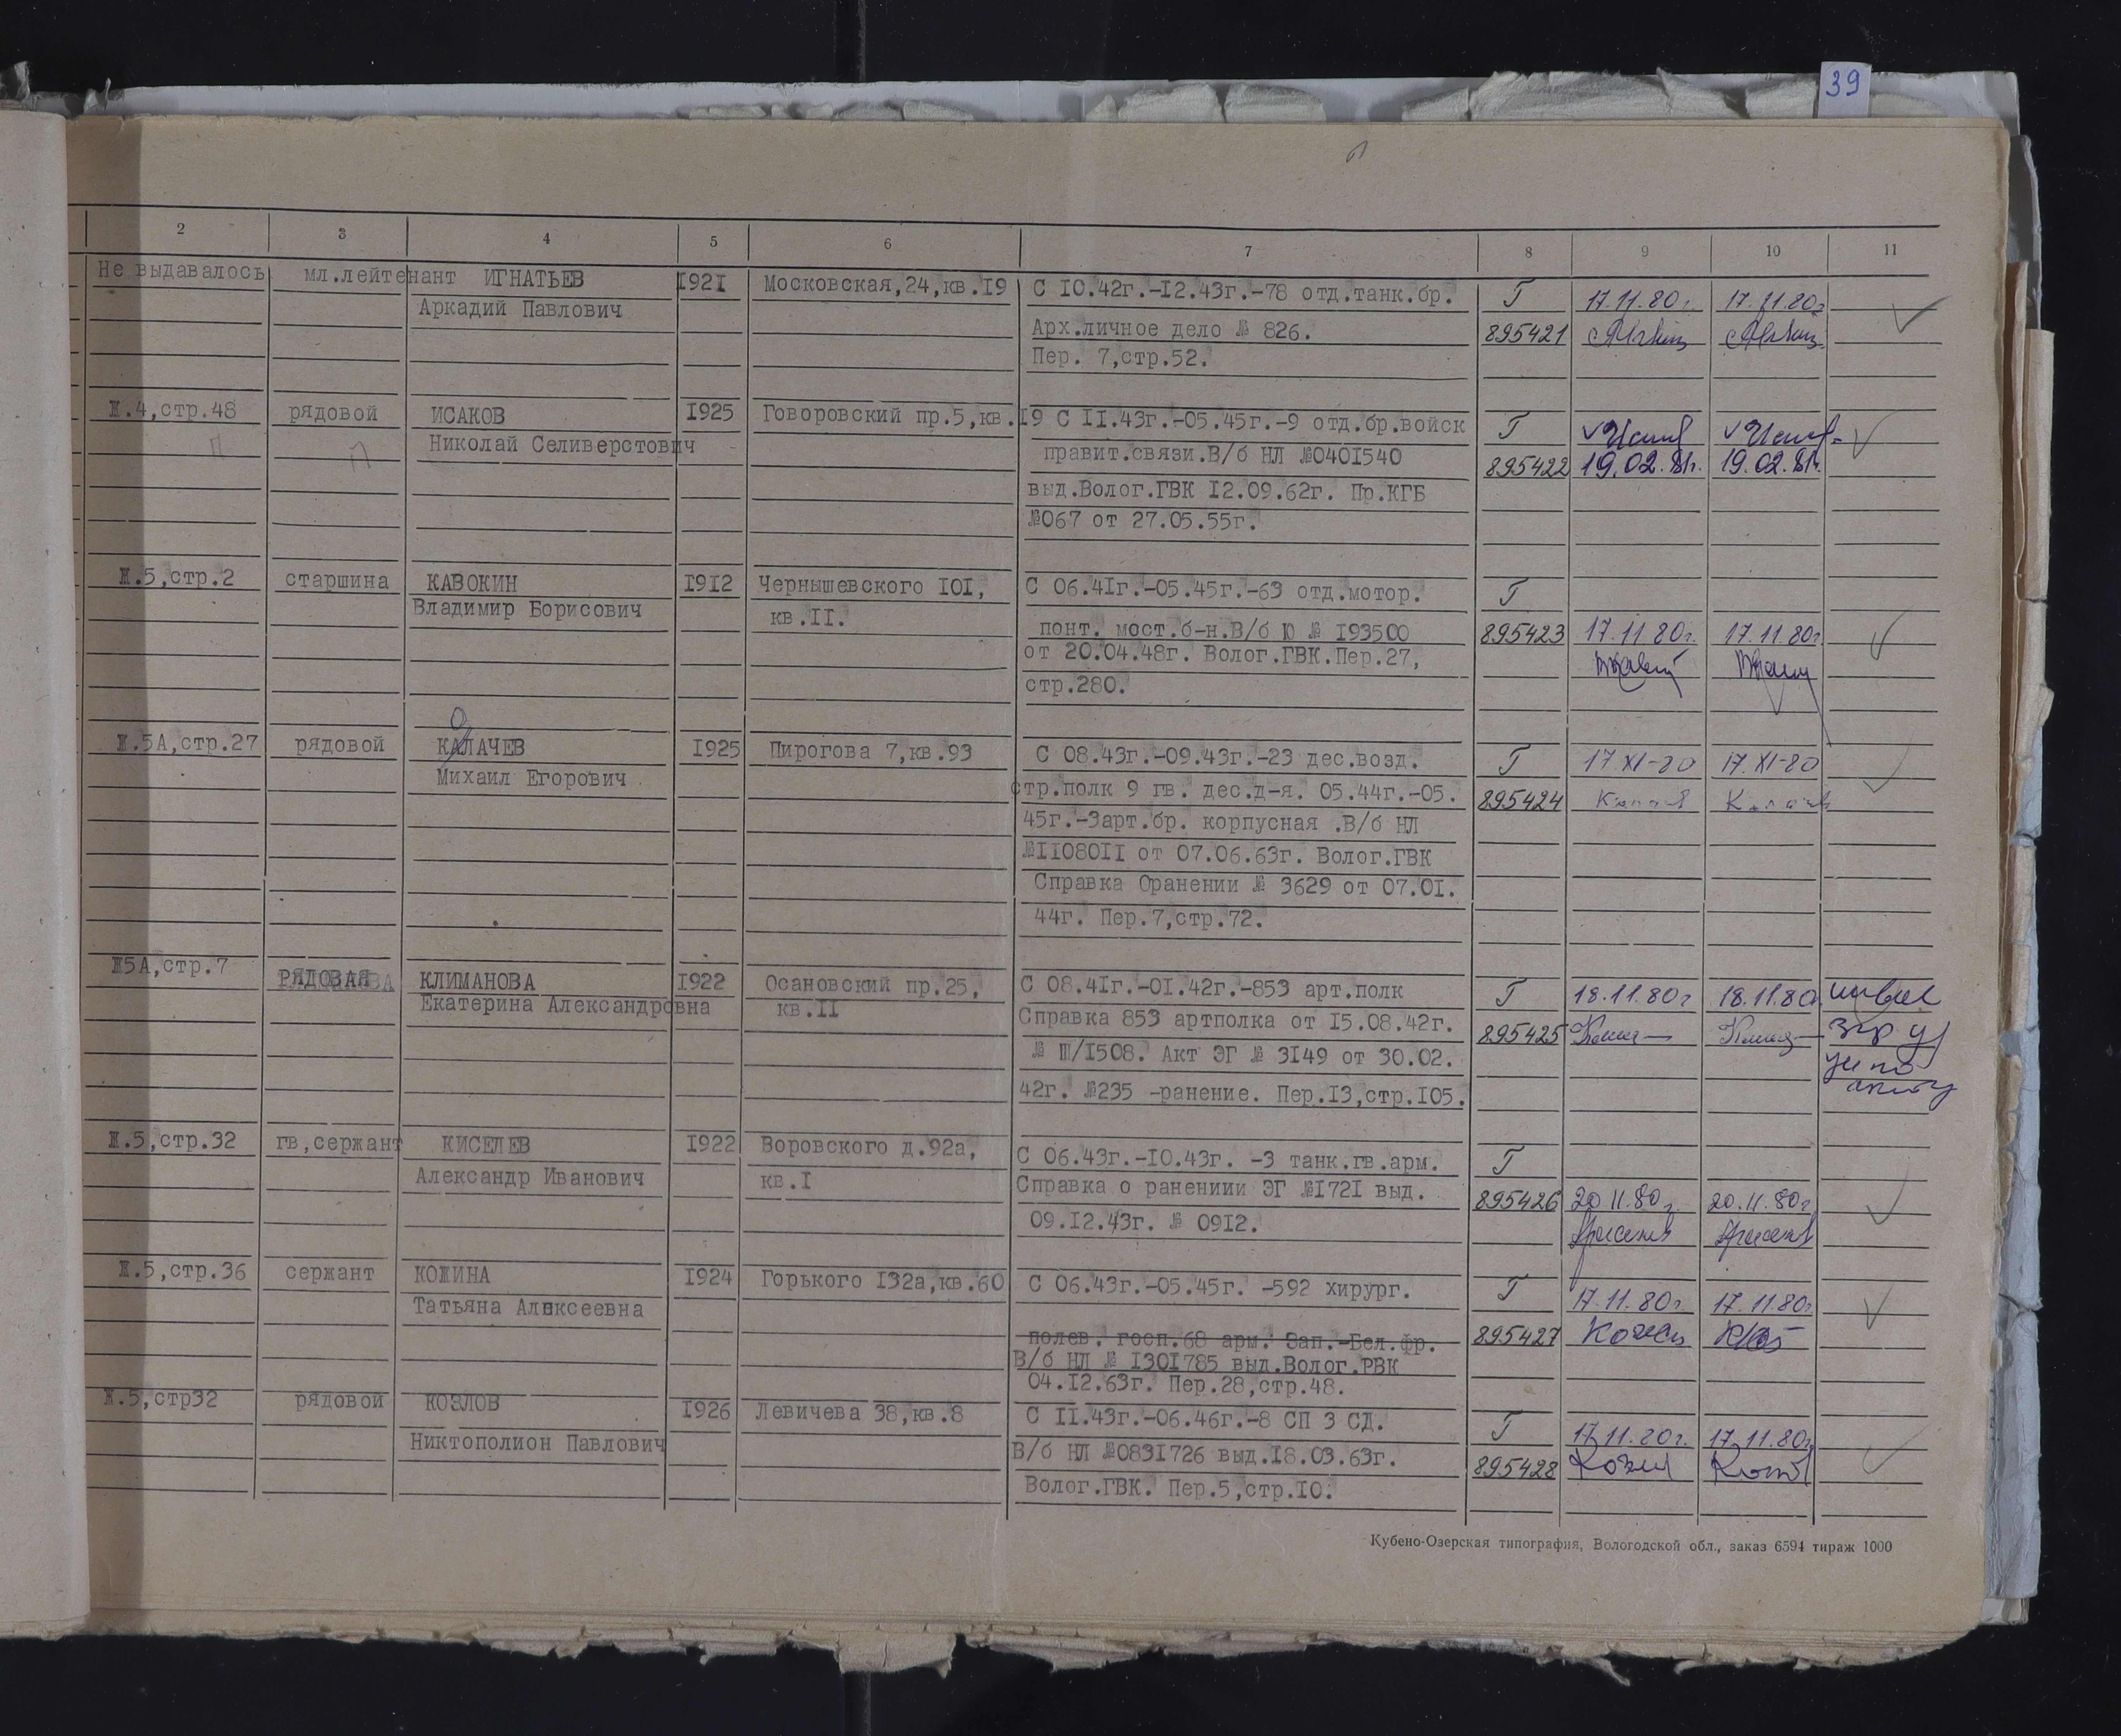 39
2 3 4 5 6 7 8 9 10 11
Не выдавалось мл.лейтенант ИГНАТЬЕВ 1921 Московская,24,кв.19 С 10.42г.-12.43г.-78 отд.танк.бр. Т 17.11.80г. 17.11.80г
Аркадий Павлович Арх.личное дело № 826. 895421
Пер. 7,стр.52.
Ж.4,стр.48 рядовой ИСАКОВ 1925 Говоровский пр.5,кв.19 С 11.43г.-05.45г.-9 отд.бр.войск Т
Николай Селиверстович правит.связи.В/б НЛ №0401540 895422 19.02.81г. 19.02.81г.
выд.Волог.ГВК 12.09.62г. Пр.КГБ
№067 от 27.05.55г.
Ж.5,стр.2 старшина КАВОКИН 1912 Чернышевского 101, С 06.41г.-05.45г.-63 отд.мотор. Т
Владимир Борисович кв.11. понт. мост.б-н.В/б Ю № 193500 895423 17.11 80г. 17.11.80г
от 20.04.48г. Волог.ГВК.Пер.27,
стр.280.
Ж.5А,стр.27 рядовой КАЛАЧЕВ 1925 Пирогова 7,кв.93 С 08.43г.-09.43г.-23 дес.возд. Т 17.XI-80 17.XI-80
Михаил Егорович стр.полк 9 гв. дес.д-я. 05.44г.-05. 895424
45г.-3арт.бр. корпусная .В/б НЛ
№1108011 от 07.06.63г. Волог.ГВК
Справка Оранении № 3629 от 07.01.
44г. Пер.7,стр.72.
Ж5А,стр.7 РЯДОВАЯ КЛИМАНОВА 1922 Осановский пр.25, С 08.41г.-01.42г.-853 арт.полк Т 18.11.80г 18.11.80
Екатерина Александровна кв.11 Справка 853 артполка от 15.08.42г. 895425
№ Ш/1508. Акт ЭГ № 3149 от 30.02.
42г. №235 -ранение. Пер.13,стр.105.
Ж.5,стр.32 гв,сержант КИСЕЛЕВ 1922 Воровского д.92а, С 06.43г.-10.43г. -3 танк.гв.арм. Т
Александр Иванович кв.1 Справка о ранениии ЭГ №1721 выд. 895426 20 11.80г. 20.11.80г
09.12.43г. № 0912.
Ж.5,стр.36 сержант КОЖИНА 1924 Горького 132а,кв.60 С 06.43г.-05.45г. -592 хирург. Т 17.11.80г. 17.11.80г
Татьяна Алексеевна
полев. госп.68 арм. Зап.-Бел.фр. 895427
В/б НЛ № 1301785 выд.Волог.РВК
04.12.63г. Пер.28,стр.48.
Ж.5,стр32 рядовой КОЗЛОВ 1926 Левичева 38,кв.8 С 11.43г.-06.46г.-8 СП 3 СД. Т 17.11.80г. 17.11.80г
Никтополион Павлович В/б НЛ №0831726 выд.18.03.63г. 895428
Волог.ГВК. Пер.5,стр.10.
Кубено-Озерская типография, Вологодской обл., заказ 6594 тираж 1000